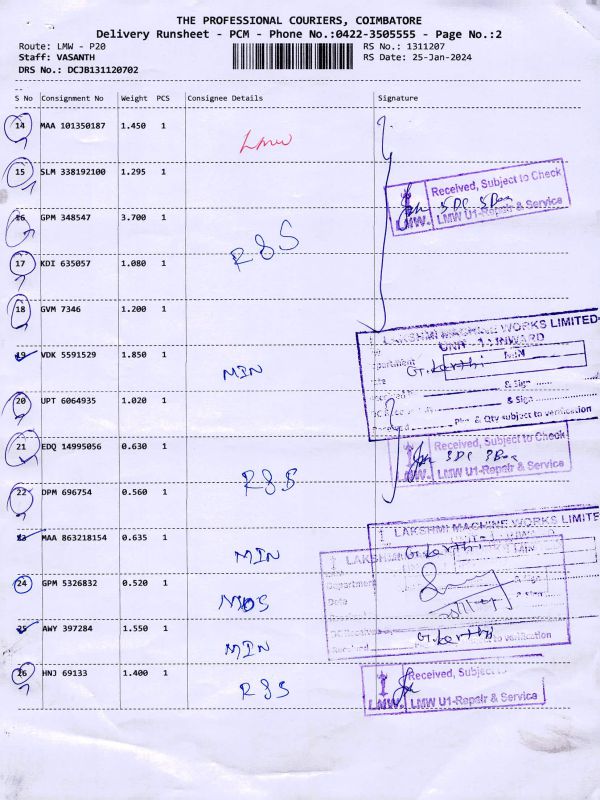 THE PROFESSIONAL COURIERS, COIMBATORE
Delivery Runsheet - PCM - Phone No.:0422-3505555 - Page No.:2
Route: LMW - P20
RS No.: 1311207
Staff: VASANTH
RS Date: 25-Jan-2024
DRS No.: DCJB131120702
S No Consignment No Weight PCS Consignee Details Signature
14 MAA 101350187 1.450 1 LMW
15 SLM 338192100 1.295 1
Received, Subject to Check
LMW. LMW U1-Repair & Service
16 GPM 348547 3.700 1 R&S
17 KDI 635057 1.080 1
18 GVM 7346 1.200 1
LAKSHMI MACHINE WORKS LIMITED
UNIT - 1 : INWARD
19 VDK 5591529 1.850 1 MIN
MIN
G.Karthi
& Sign
& Sign
20 UPT 6064935 1.020 1
& Qty subject to verification
21 EDQ 14995056 0.630 1 R&S
Received, Subject to Check
LMW. LMW U1-Repair & Service
22 DPM 696754 0.560 1
23 MAA 863218154 0.635 1 MIN
LAKSHMI MACHINE WORKS LIMITE
G.Karthi
24 GPM 5326832 0.520 1
Department
Date
25 AWY 397284 1.550 1 MIN
G.Karthi
to verification
26 HNJ 69133 1.400 1 R&S
Received, Subject
LMW. LMW U1-Repair & Service